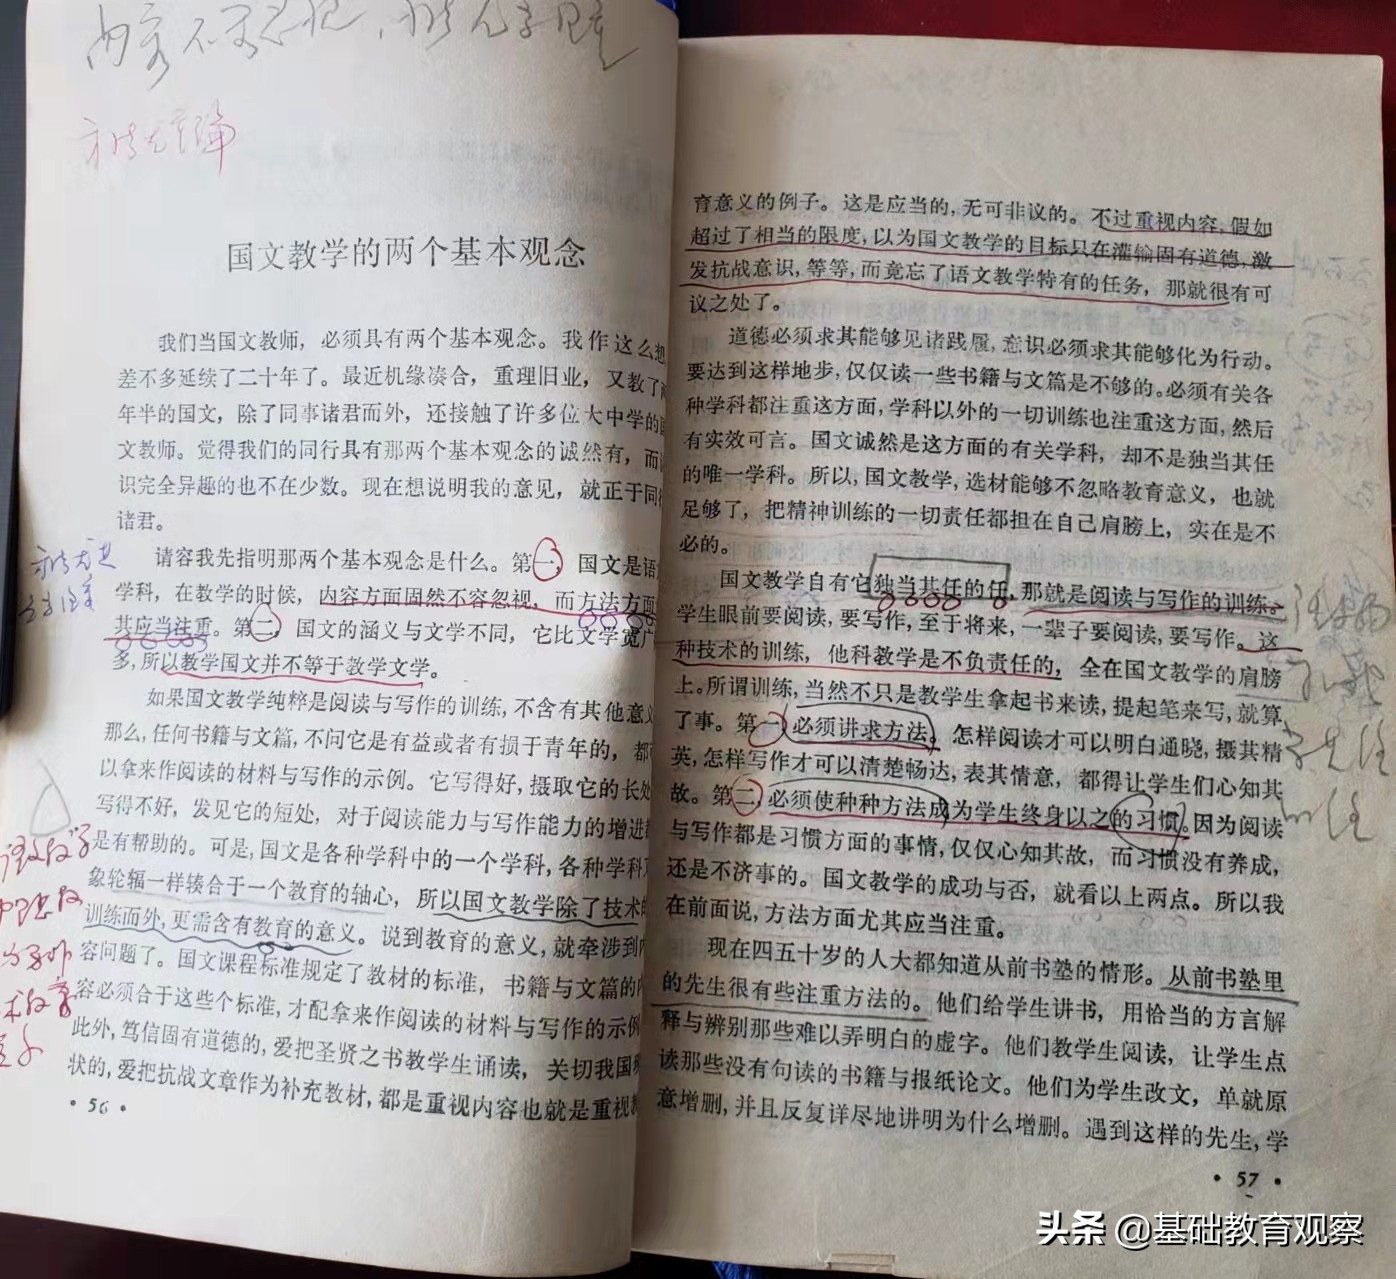 国文教学的两个基本观念
我们当国文教师，必须具有两个基本观念。我作这么想
差不多延续了二十年了。最近机缘凑合，重理旧业，又教了
年半的国文，除了同事诸君而外，还接触了许多位大中学的
文教师。觉得我们的同行具有那两个基本观念的诚然有，而
识完全异趣的也不在少数。现在想说明我的意见，就正于同
诸君。
请容我先指明那两个基本观念是什么。第一，国文是语
学科，在教学的时候，内容方面固然不容忽视，而方法方面
其应当注重。第二，国文的涵义与文学不同，它比文学宽广
多，所以教学国文并不等于教学文学。
如果国文教学纯粹是阅读与写作的训练，不含有其他意义
那么，任何书籍与文篇，不问它是有益或者有损于青年的，都
以拿来作阅读的材料与写作的示例。它写得好，摄取它的长处
写得不好，发见它的短处，对于阅读能力与写作能力的增进
是有帮助的。可是，国文是各种学科中的一个学科，各种学科
象轮辐一样辏合于一个教育的轴心，所以国文教学除了技术
训练而外，更需含有教育的意义。说到教育的意义，就牵涉到
容问题了。国文课程标准规定了教材的标准，书籍与文篇的
容必须合于这些个标准，才配拿来作阅读的材料与写作的示例
此外，笃信固有道德的，爱把圣贤之书教学生诵读，关切我国
状的，爱把抗战文章作为补充教材，都是重视内容也就是重视
·56·
育意义的例子。这是应当的，无可非议的。不过重视内容，假如
超过了相当的限度，以为国文教学的目标只在灌输固有道德，激
发抗战意识，等等，而竟忘了语文教学特有的任务，那就很有可
议之处了。
道德必须求其能够见诸践履，意识必须求其能够化为行动。
要达到这样地步，仅仅读一些书籍与文篇是不够的。必须有关各
种学科都注重这方面，学科以外的一切训练也注重这方面，然后
有实效可言。国文诚然是这方面的有关学科，却不是独当其任
的唯一学科。所以，国文教学，选材能够不忽略教育意义，也就
足够了，把精神训练的一切责任都担在自己肩膀上，实在是不
必的。
国文教学自有它独当其任的任，那就是阅读与写作的训练。
学生眼前要阅读，要写作，至于将来，一辈子要阅读，要写作。这
种技术的训练，他科教学是不负责任的，全在国文教学的肩膀
上。所谓训练，当然不只是教学生拿起书来读，提起笔来写，就算
了事。第一，必须讲求方法。怎样阅读才可以明白通晓，摄其精
英，怎样写作才可以清楚畅达，表其情意，都得让学生们心知其
故。第二，必须使种种方法成为学生终身以之的习惯。因为阅读
与写作都是习惯方面的事情，仅仅心知其故，而习惯没有养成，
还是不济事的。国文教学的成功与否，就看以上两点。所以我
在前面说，方法方面尤其应当注重。
现在四五十岁的人大都知道从前书塾的情形。从前书塾里
的先生很有些注重方法的。他们给学生讲书，用恰当的方言解
释与辨别那些难以弄明白的虚字。他们教学生阅读，让学生点
读那些没有句读的书籍与报纸论文。他们为学生改文，单就原
意增删，并且反复详尽地讲明为什么增删。遇到这样的先生，学
·57·
头条 @基础教育观察